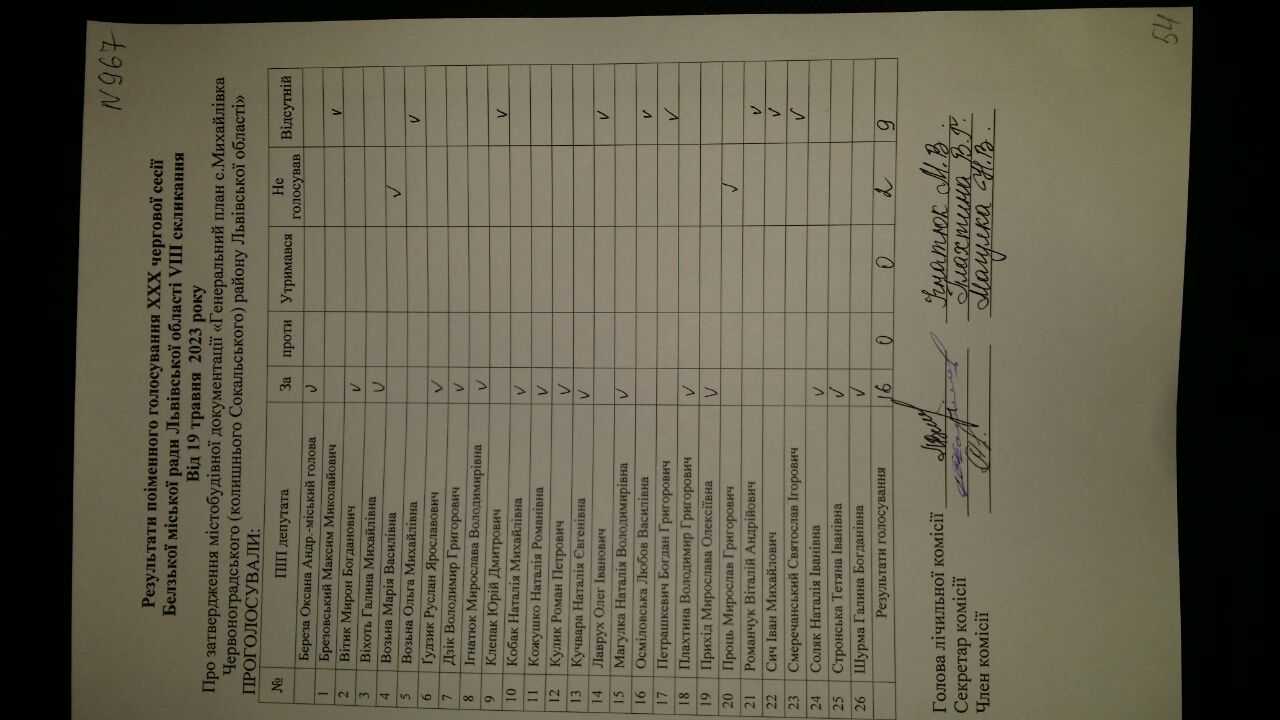 N 967
54
Результати поіменного голосування XXX чергової сесії
Белзької міської ради Львівської області VIII скликання
Від 19 травня 2023 року
Про затвердження містобудівної документації «Генеральний план с.Михайлівка
Червоноградського (колишнього Сокальського) району Львівської області»
ПРОГОЛОСУВАЛИ:
№ ПІП депутата За проти Утримався Не голосував Відсутній
Береза Оксана Андр.-міський голова ✓
1 Брезовський Максим Миколайович ✓
2 Вітик Мирон Богданович ✓
3 Віхоть Галина Михайлівна ✓
4 Возьна Марія Василівна ✓
5 Возьна Ольга Михайлівна ✓
6 Ґудзик Руслан Ярославович ✓
7 Дзік Володимир Григорович ✓
8 Ігнатюк Мирослава Володимирівна ✓
9 Клепак Юрій Дмитрович ✓
10 Кобак Наталія Михайлівна ✓
11 Кожушко Наталія Романівна ✓
12 Кулик Роман Петрович ✓
13 Кучвара Наталія Євгенівна ✓
14 Лаврух Олег Іванович ✓
15 Магулка Наталія Володимирівна ✓
16 Осміловська Любов Василівна ✓
17 Петрашкевич Богдан Григорович ✓
18 Плахтина Володимир Григорович ✓
19 Прихід Мирослава Олексіївна ✓
20 Проць Мирослав Григорович ✓
21 Романчук Віталій Андрійович ✓
22 Сич Іван Михайлович ✓
23 Смеречанський Святослав Ігорович ✓
24 Соляк Наталія Іванівна ✓
25 Стронська Тетяна Іванівна ✓
26 Шурма Галина Богданівна ✓
Результати голосування 16 0 0 2 9
Голова лічильної комісії Ігнатюк М.В
Секретар комісії Плахтина В.Г.
Член комісії Магулка Н.В.